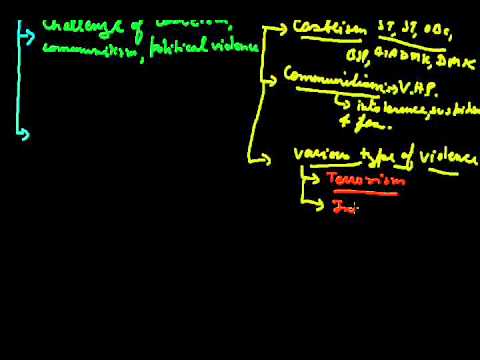 challenge of casteism,
communilism, political violence
Casteism ST, ST, OBC,
BSP, AIADMK, DMK
Communilism :- V.H.P.
intolerence, suspision
& fear.
various type of violence
Terrorism